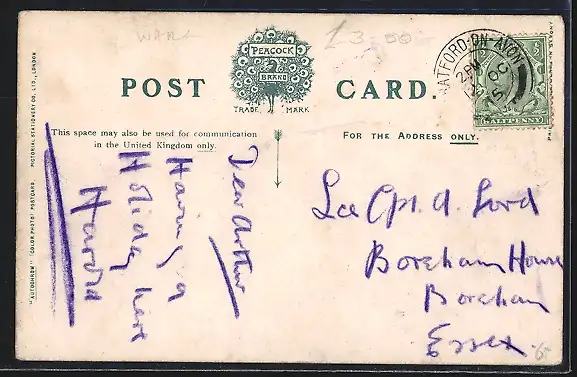 WAR
£3-00
PEACOCK
BRAND
TRADE MARK
POST CARD.
ATFORD-ON-AVON
2 PM
OC
15
HALFPENNY
This space may also be used for communication
in the United Kingdom only.
FOR THE ADDRESS ONLY.
"AUTOCHROM" (COLOR PHOTO) POSTCARD PICTORIAL STATIONERY CO. LTD., LONDON
Dear Arthur
Having a
Holiday here
Harold
Lce Cpl. A. Lord
Boreham House
Boreham
Essex